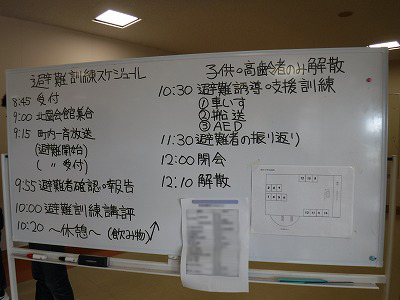 避難訓練スケジュール
8:45 受付
9:00 北園会館集合
9:15 町内一斉放送
(避難開始)
( 〃 受付)
9:55 避難者確認・報告
10:00 避難訓練講評
10:20 〜休憩〜 (飲み物)
子供・高齢者のみ解散
10:30 避難誘導・支援訓練
①車いす
②搬送
③AED
11:30 避難者の振り返り
12:00 閉会
12:10 解散